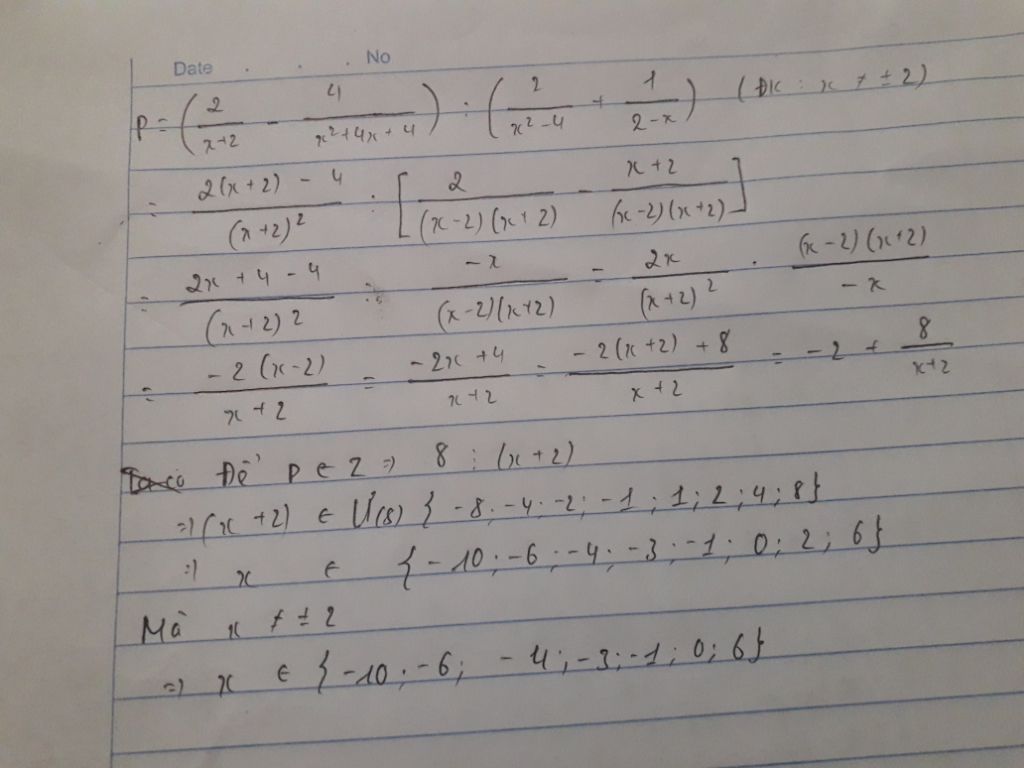 Date . . . No
P = ( 2/(x+2) - 4/(x²+4x+4) ) : ( 2/(x²-4) + 1/(2-x) ) (ĐK : x ≠ ±2)
= (2(x+2) - 4)/(x+2)² : [ 2/((x-2)(x+2)) - (x+2)/((x-2)(x+2)) ]
= (2x + 4 - 4)/(x+2)² : (-x)/((x-2)(x+2)) = 2x/(x+2)² . ((x-2)(x+2))/(-x)
= (-2(x-2))/(x+2) = (-2x+4)/(x+2) = (-2(x+2) + 8)/(x+2) = -2 + 8/(x+2)
Để P ∈ Z => 8 ⋮ (x+2)
=> (x+2) ∈ Ư(8) { -8; -4; -2; -1; 1; 2; 4; 8}
=> x ∈ {-10; -6; -4; -3; -1; 0; 2; 6}
Mà x ≠ ±2
=> x ∈ {-10; -6; -4; -3; -1; 0; 6}